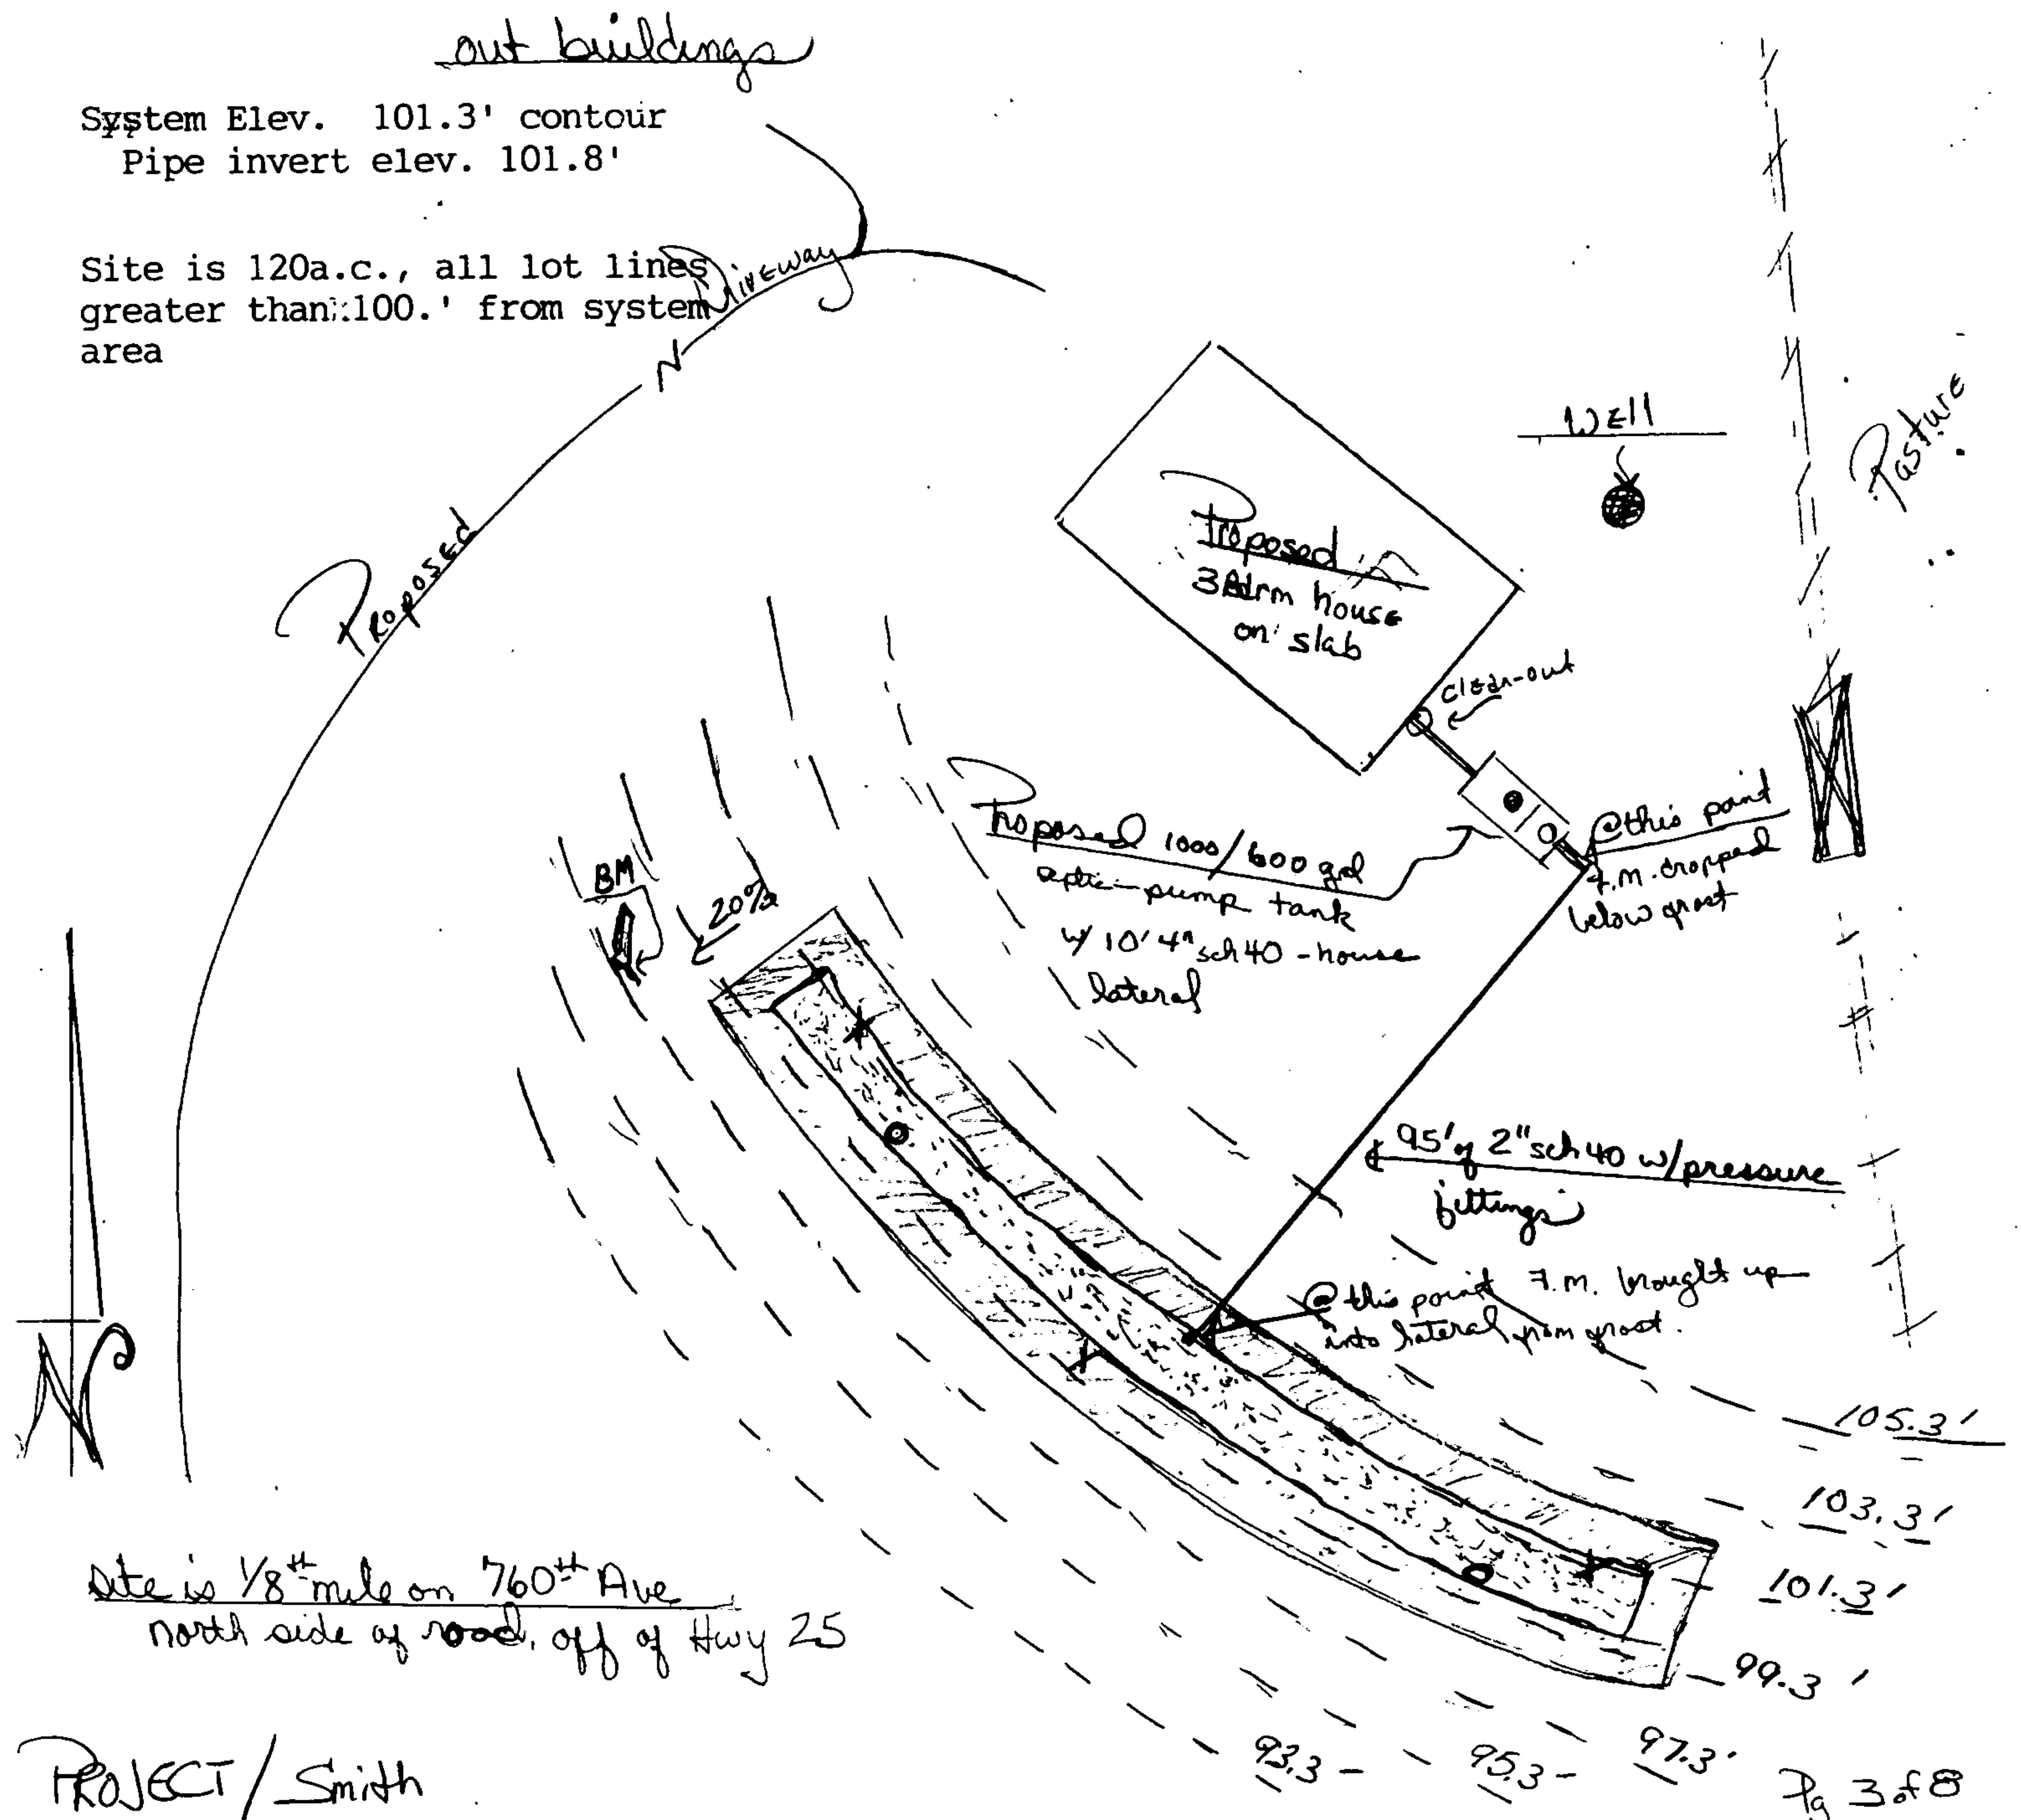 out buildings
System Elev. 101.3' contour
Pipe invert elev. 101.8'
Site is 120a.c., all lot lines
greater than 100.' from system
area
Proposed Driveway
Well
Pasture
Proposed
3Bdrm house
on slab
clean-out
Proposed 1000/600 gal
septic-pump tank
w/ 10' 4" sch 40 - house
lateral
@this point
F.M. dropped
below frost
BM
20%
95' of 2" sch 40 w/pressure
fittings
@ this point F.M. brought up
into lateral from frost.
N
105.3'
103.3'
101.3'
99.3'
97.3'
95.3
93.3
site is 1/8th mile on 760th Ave
north side of road, off of Hwy 25
PROJECT/Smith
Pg 3 of 8